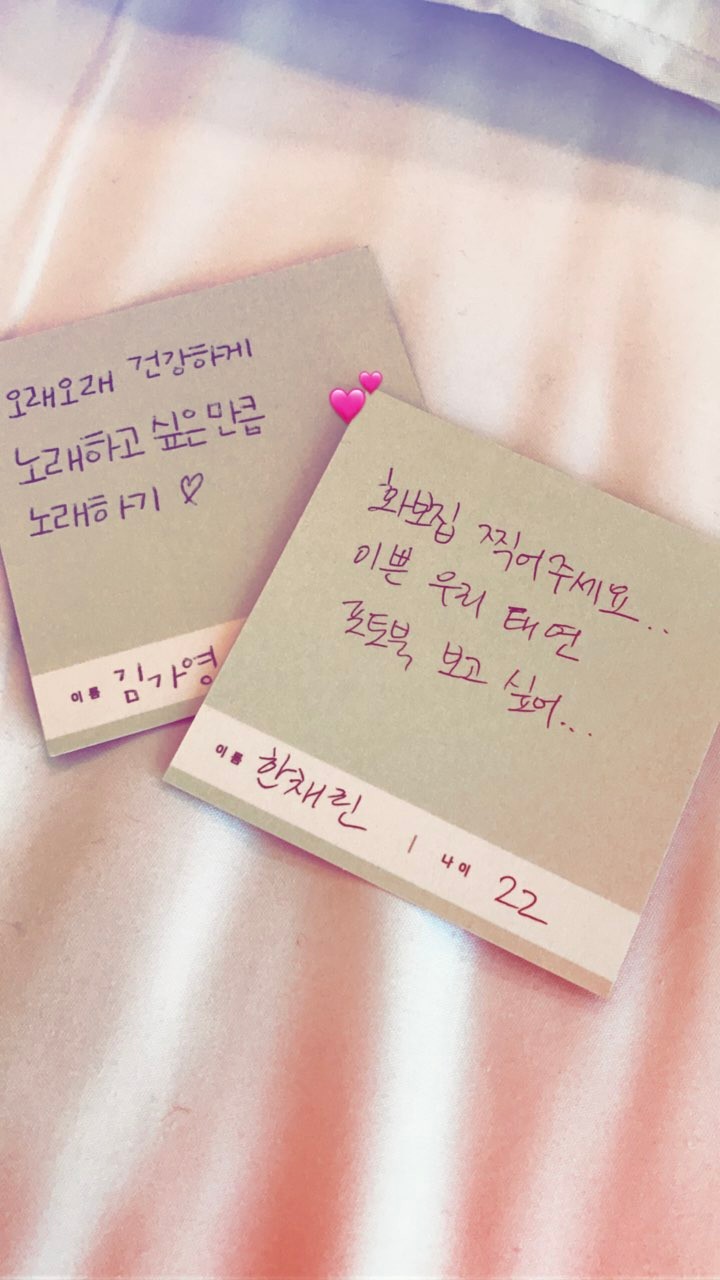 오래오래 건강하게
노래하고 싶은만큼
노래하기 ♡
이름 김가영
화보집 찍어주세요..
이쁜 우리 태연
포토북 보고 싶어...
이름 한채린 | 나이 22